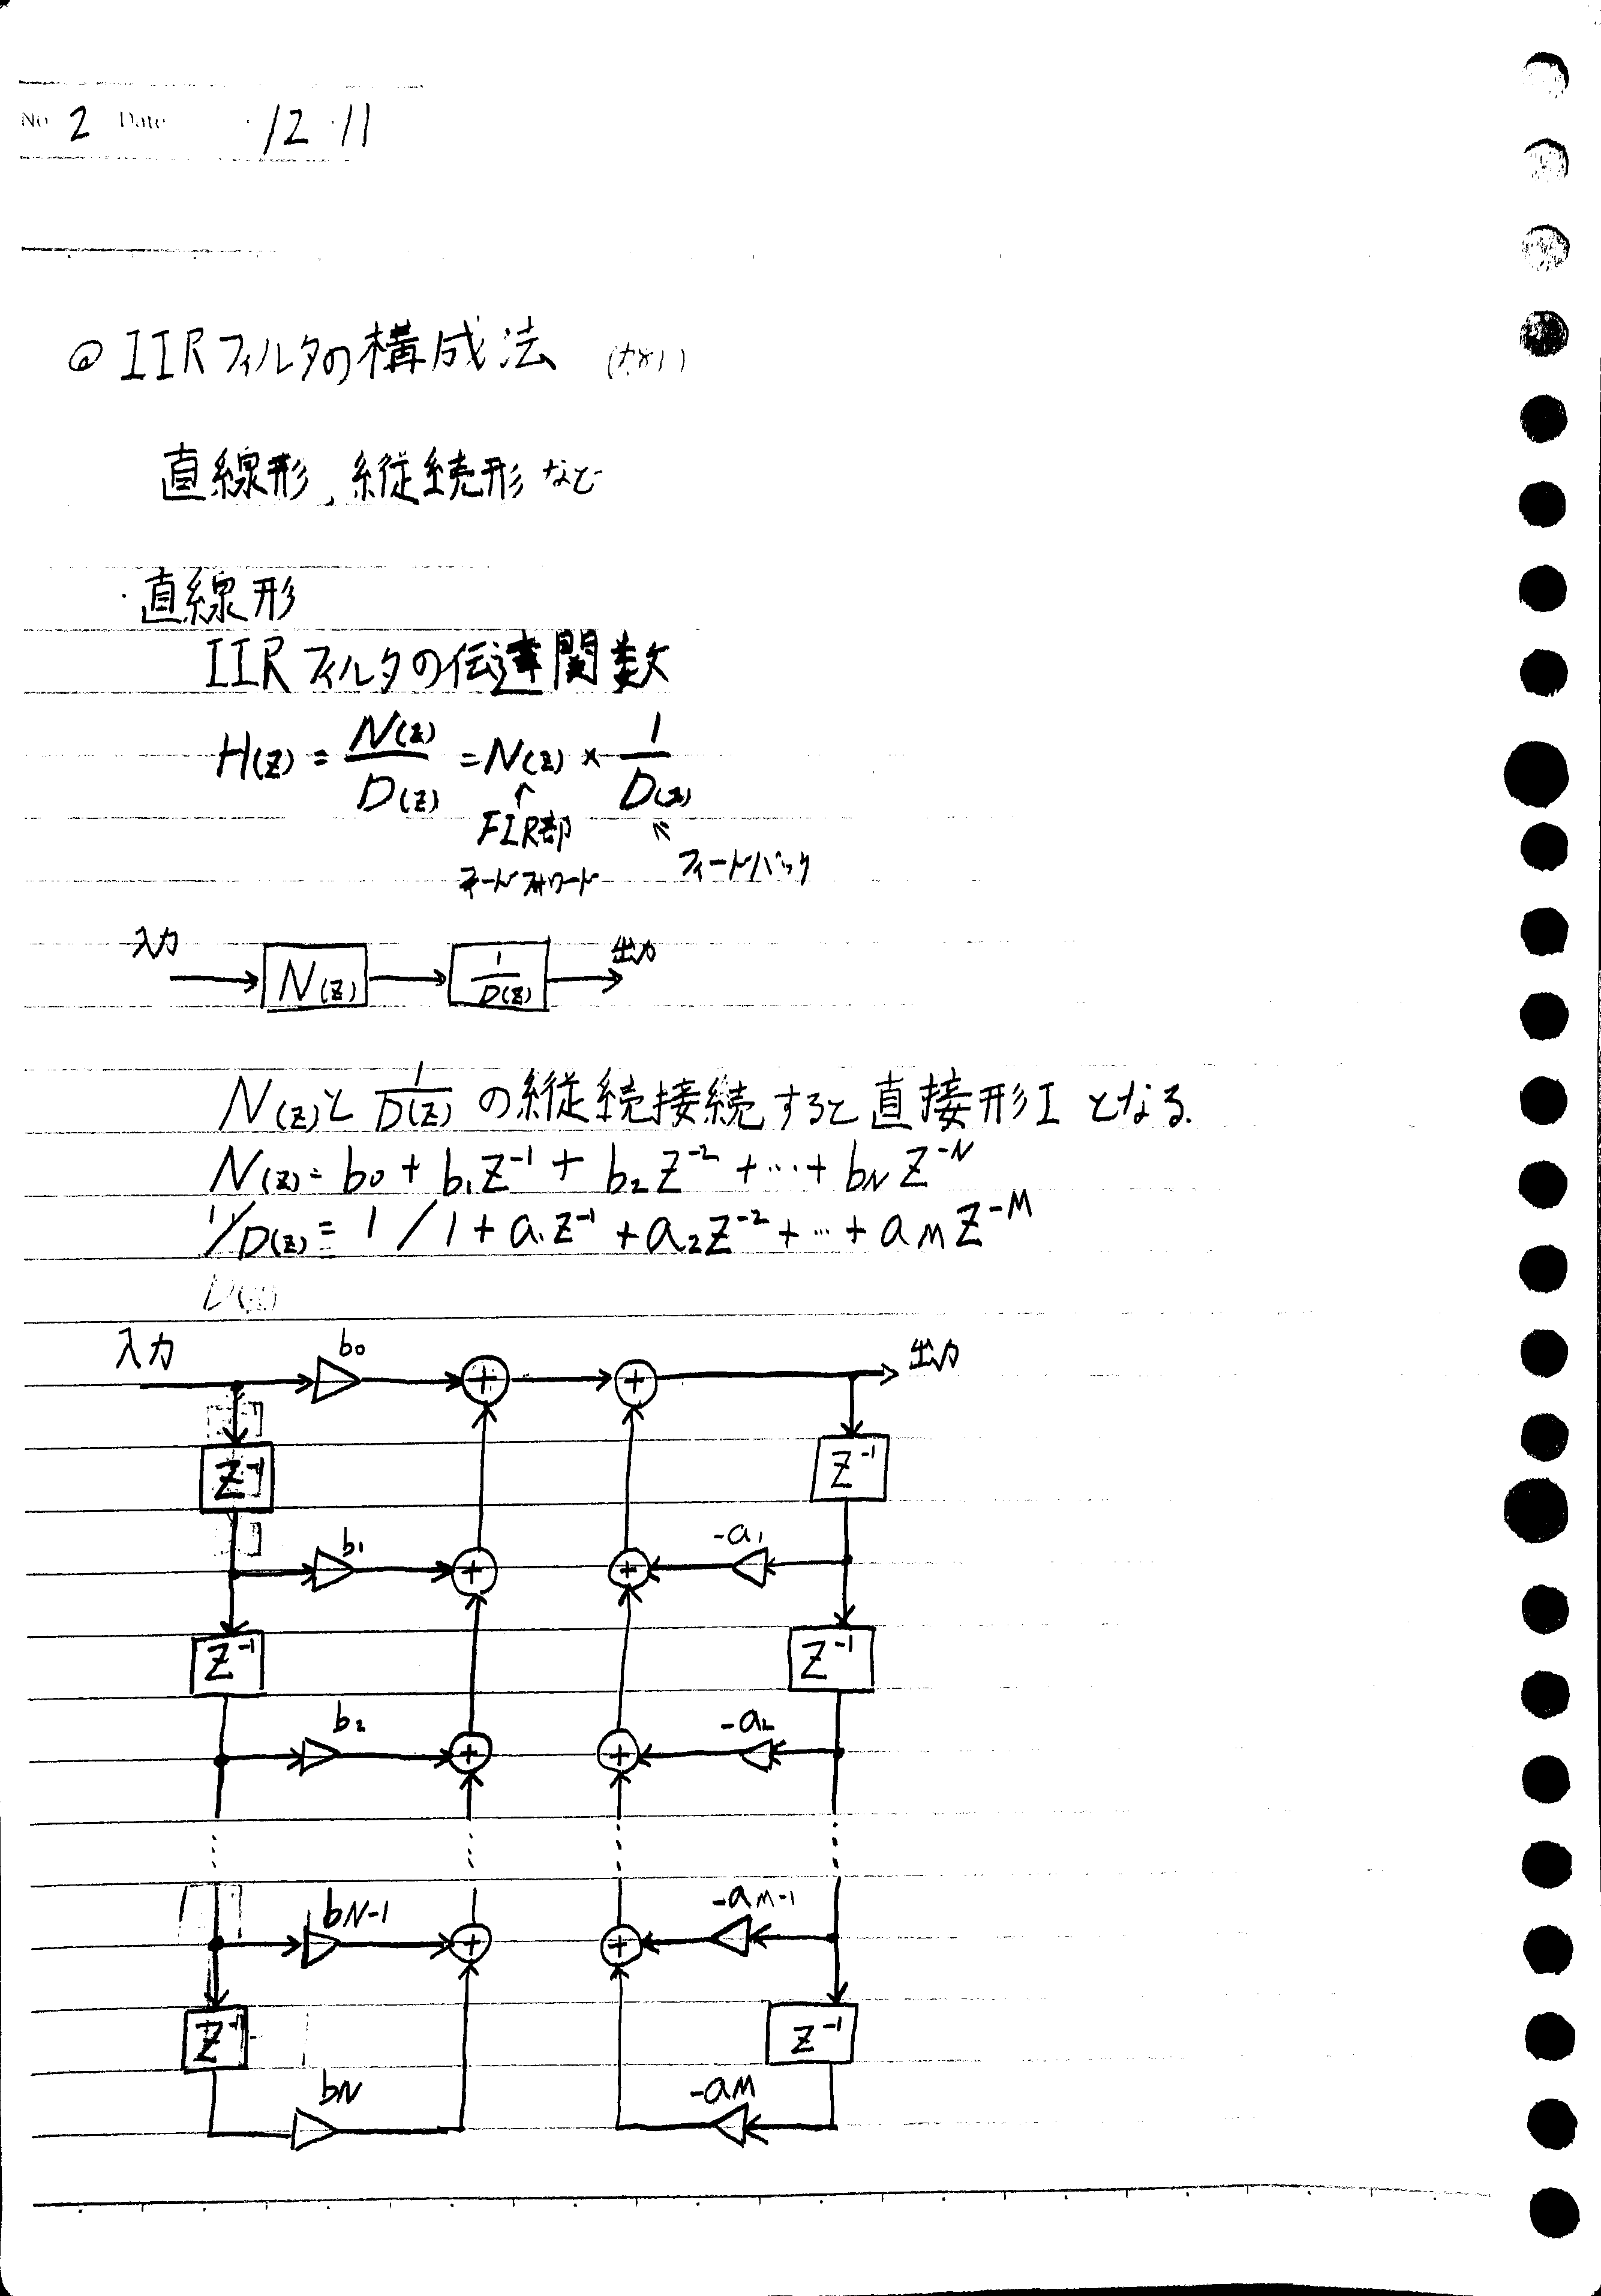 No 2 Date ・12・11
◎ IIRフィルタの構成法
直線形、縦続形 など
・直線形
IIRフィルタの伝達関数
H(z) = N(z)/D(z) = N(z) × 1/D(z)
↑ FIR部 ↖
フィードフォワード フィードバック
入力 N(z) 1/D(z) 出力
N(z)と 1/D(z) の縦続接続すると直接形I となる.
N(z) = b0 + b1 z^-1 + b2 z^-2 + … + bN z^-N
1/D(z) = 1 / 1 + a1 z^-1 + a2 z^-2 + … + aM z^-M
D(z)
入力 b0 + + 出力
z^-1 z^-1
b1 + + -a1
z^-1 z^-1
b2 + + -a2
bN-1 + + -aM-1
z^-1 z^-1
bN -aM